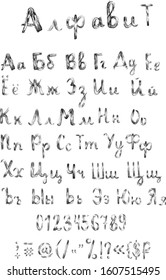 Алфавит
Аа Бб Вв Гг Дд Ее
Ёё Жж Зз Ии Йй
Кк Лл Мм Нн Оо
Пп Рр Сс Тт Уу Фф
Хх Цц Чч Шш Щщ
Ъъ Ыы Ьь Ээ Юю Яя
0123456789
shutterstock.com · 1607515499